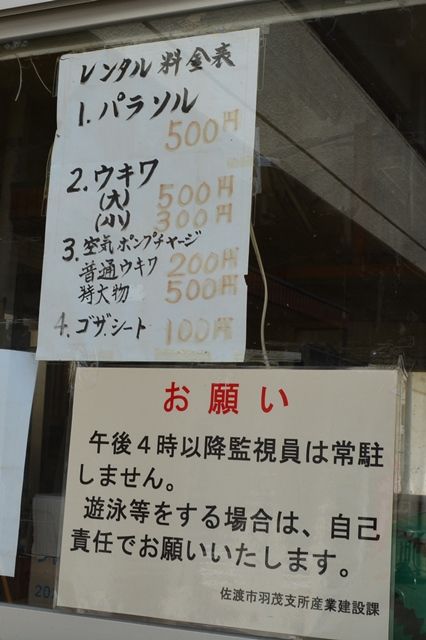 レンタル料金表
1. パラソル
500円
2. ウキワ
(大) 500円
(小) 300円
3. 空気ポンプチャージ
普通ウキワ 200円
特大物 500円
4. ゴザ.シート 100円
お願い
午後4時以降監視員は常駐
しません。
遊泳等をする場合は、自己
責任でお願いいたします。
佐渡市羽茂支所産業建設課